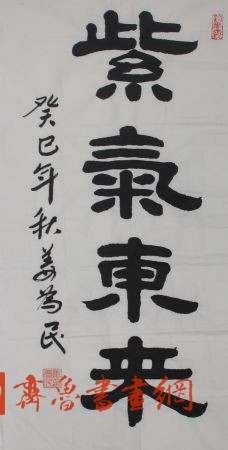 紫氣東來
癸巳年秋姜為民
齊魯書畫網